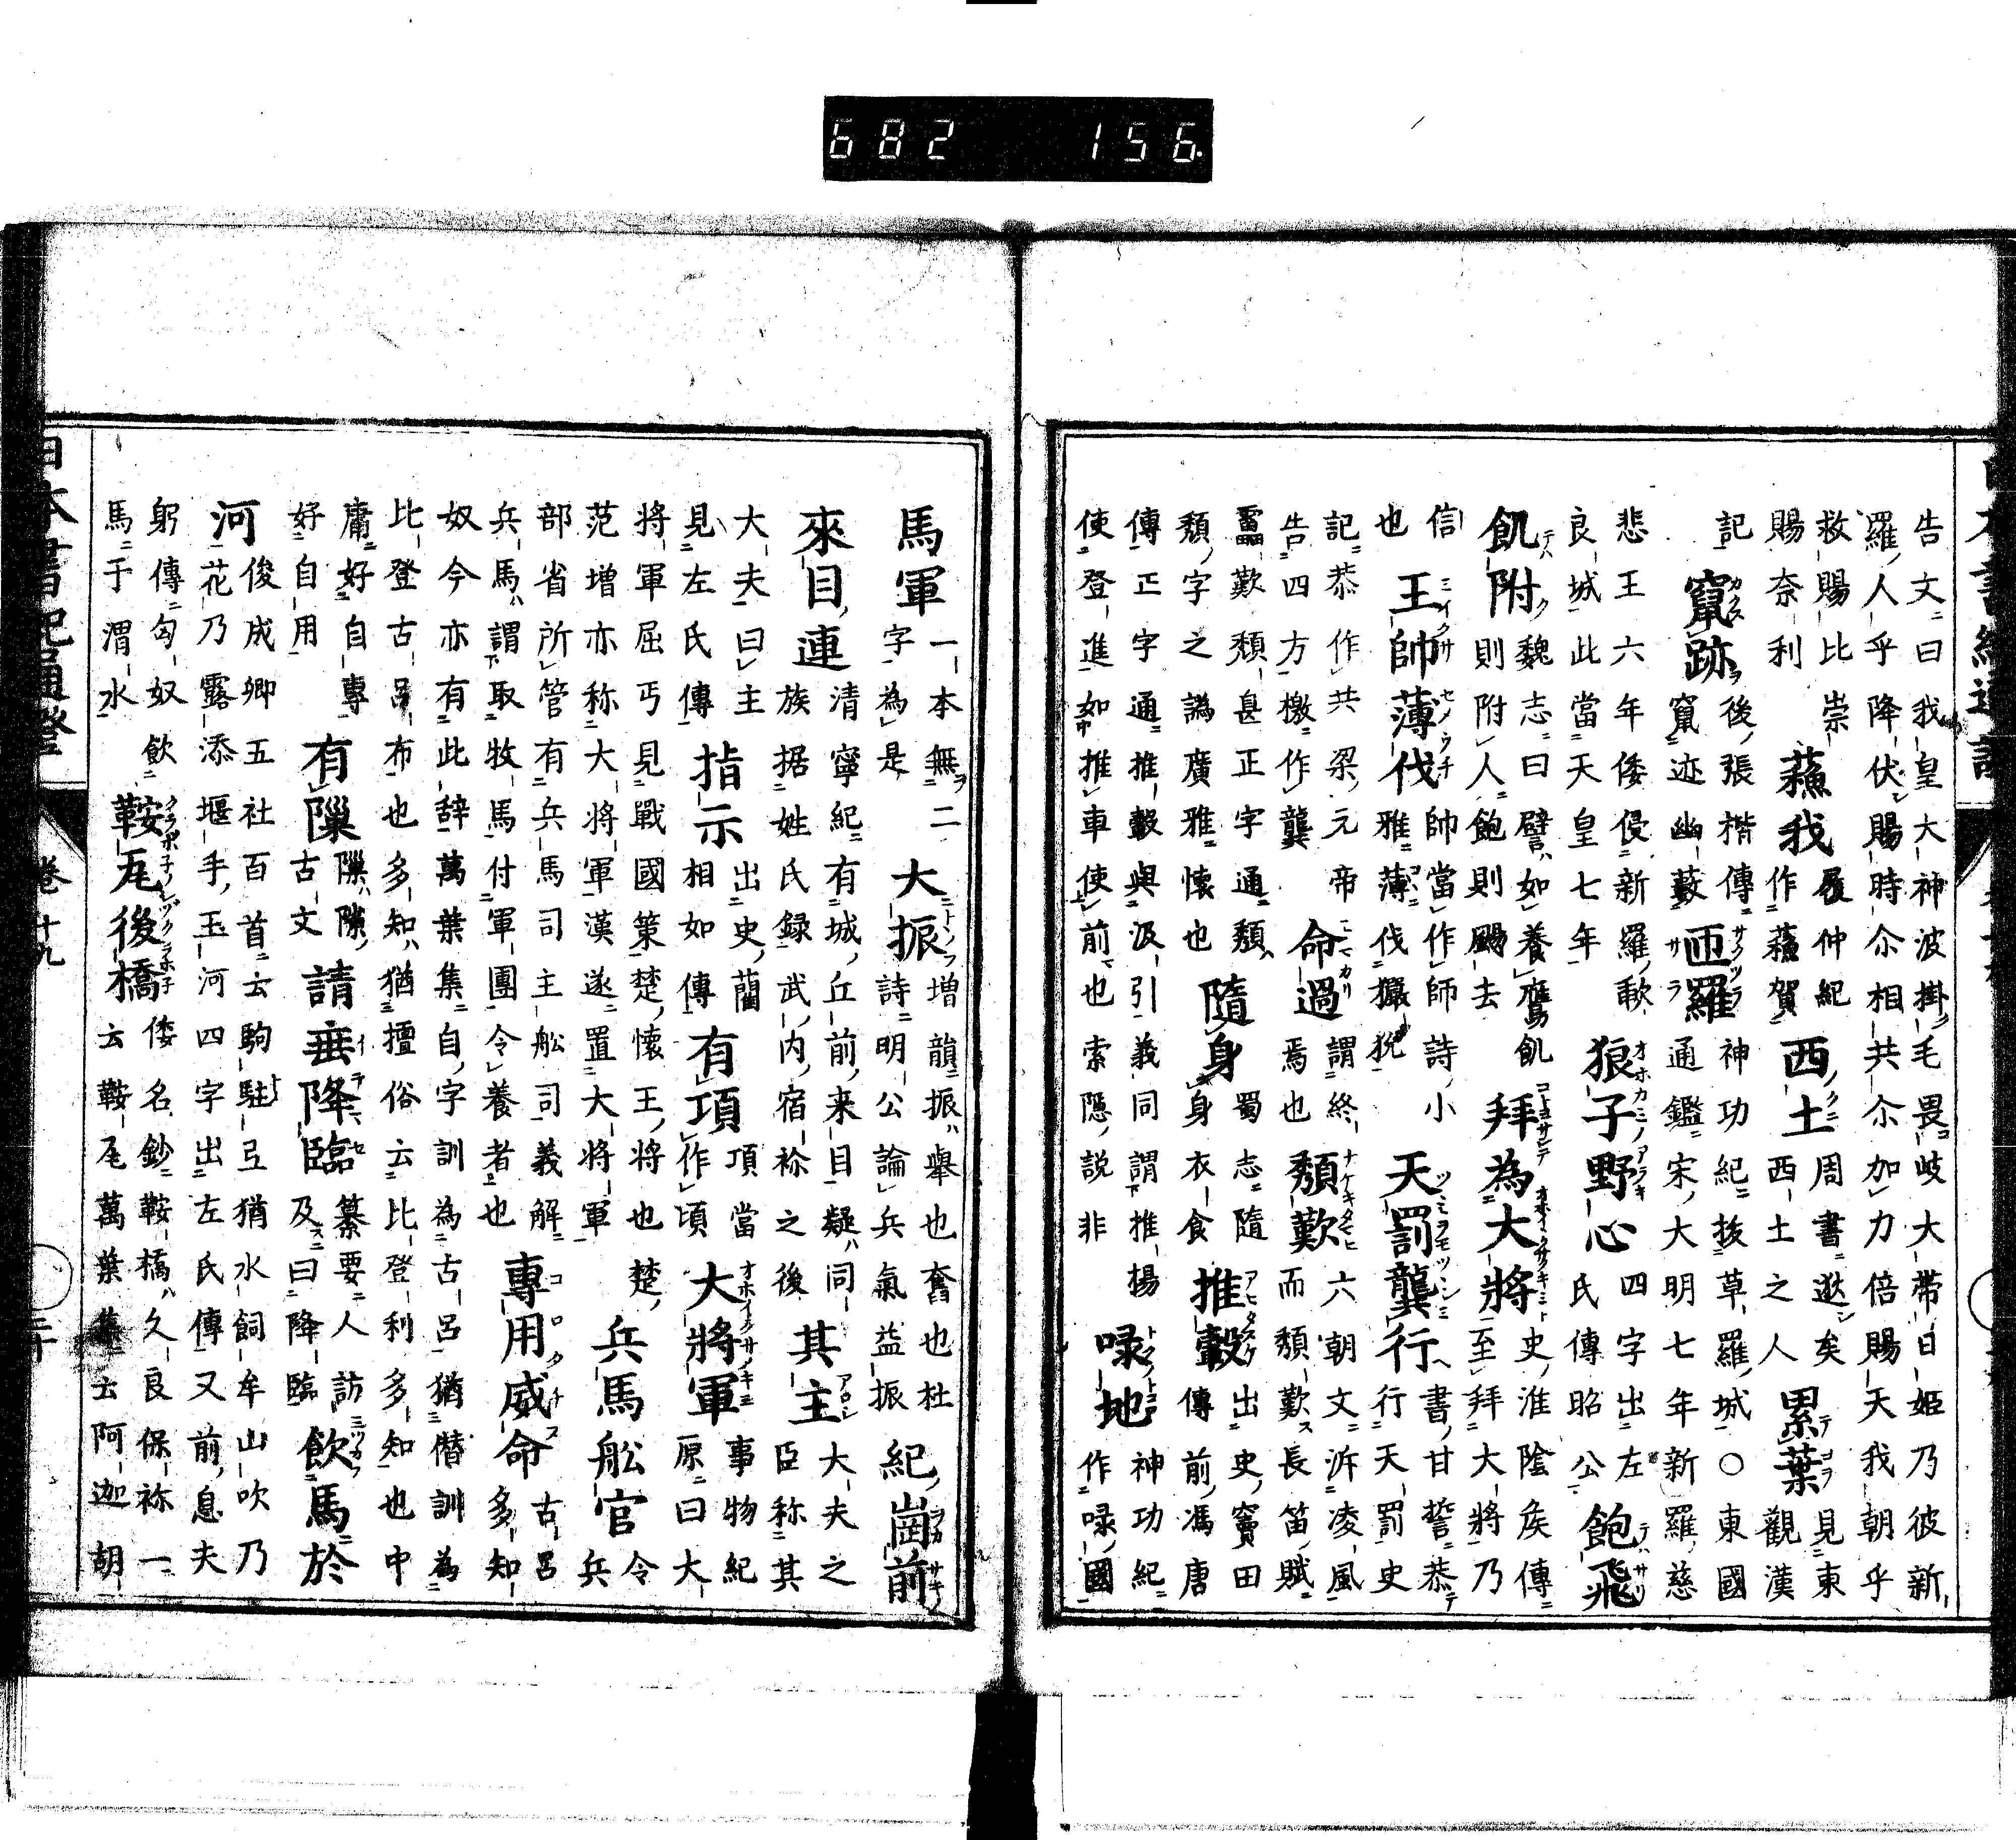 682 156
告文曰我皇大神波掛毛畏岐大帶日姫乃彼新
羅人乎降伏賜時尒相共尒加力倍賜天我朝乎
救賜比崇
賜奈利
蘓我
履仲紀
作蘓賀
西土
周書逖矣
西土之人
累葉
見東
觀漢
記
竄跡
後張楷傳
竄迹幽藪
匝羅
神功紀抜草羅城○東國
通鑑宋大明七年新羅慈
悲王六年倭侵新羅歃
良城此當天皇七年
狼子野心
四字出左
氏傳昭公
飽飛
飢附
魏志曰譬如養鷹飢
則附人飽則颺去
拜為大將
史淮陰矦傳
至拜大將乃
信
也
王帥薄伐
帥當作師詩小
雅薄伐玁狁
天罰龔行
書甘誓恭
行天罰史
記恭作共梁元帝
告四方檄作龔
命過
謂終
焉也
頽歎
六朝文泝凌風
而頽歎長笛賦
靁歎頽甚正字通頽
頽字之譌廣雅懷也
隨身
蜀志隨
身衣食
推轂
出史竇田
傳前馮唐
傳正字通推轂與汲引義同謂推揚
使登進如推車使前也索隠説非
㖨地
神功紀
作㖨國
馬軍
一本無二
字為是
大振
増韻振擧也奮也杜
詩明公論兵氣益振
紀崗前
來目連
清寧紀有城丘前来目疑同
族据姓氏録武内宿祢之後
其主
大夫之
臣称其
大夫曰主
見左氏傳
指示
出史藺
相如傳
有項
項當
作頃
大將軍
事物紀
原曰大
將軍屈丐見戰國策楚懷王將也楚
范増亦称大將軍漢遂置大將軍
兵馬舩官
令
兵
部省所管有兵馬司主舩司義解
兵馬謂取牧馬付軍團令養者也
專用威命
古呂
多知
奴今亦有此辞萬葉集自字訓為古呂猶僭訓為
比登古呂布也多知猶擅俗云比登利多知也中
庸好自專
好自用
有隟
隟隙
古文
請垂降臨
纂要人訪
及曰降臨
飲馬於
河
俊成卿五社百首云駒駐弖猶水飼牟山吹乃
花乃露添堰手玉河四字出左氏傳又前息夫
躬傳匈奴飲
馬于渭水
鞍瓦後橋
倭名鈔鞍橋久良保祢一
云鞍尾萬葉集云阿迦胡
日本書紀通證
卷十九